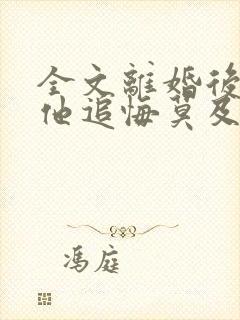 全文離婚後
他追悔莫及
馮庭